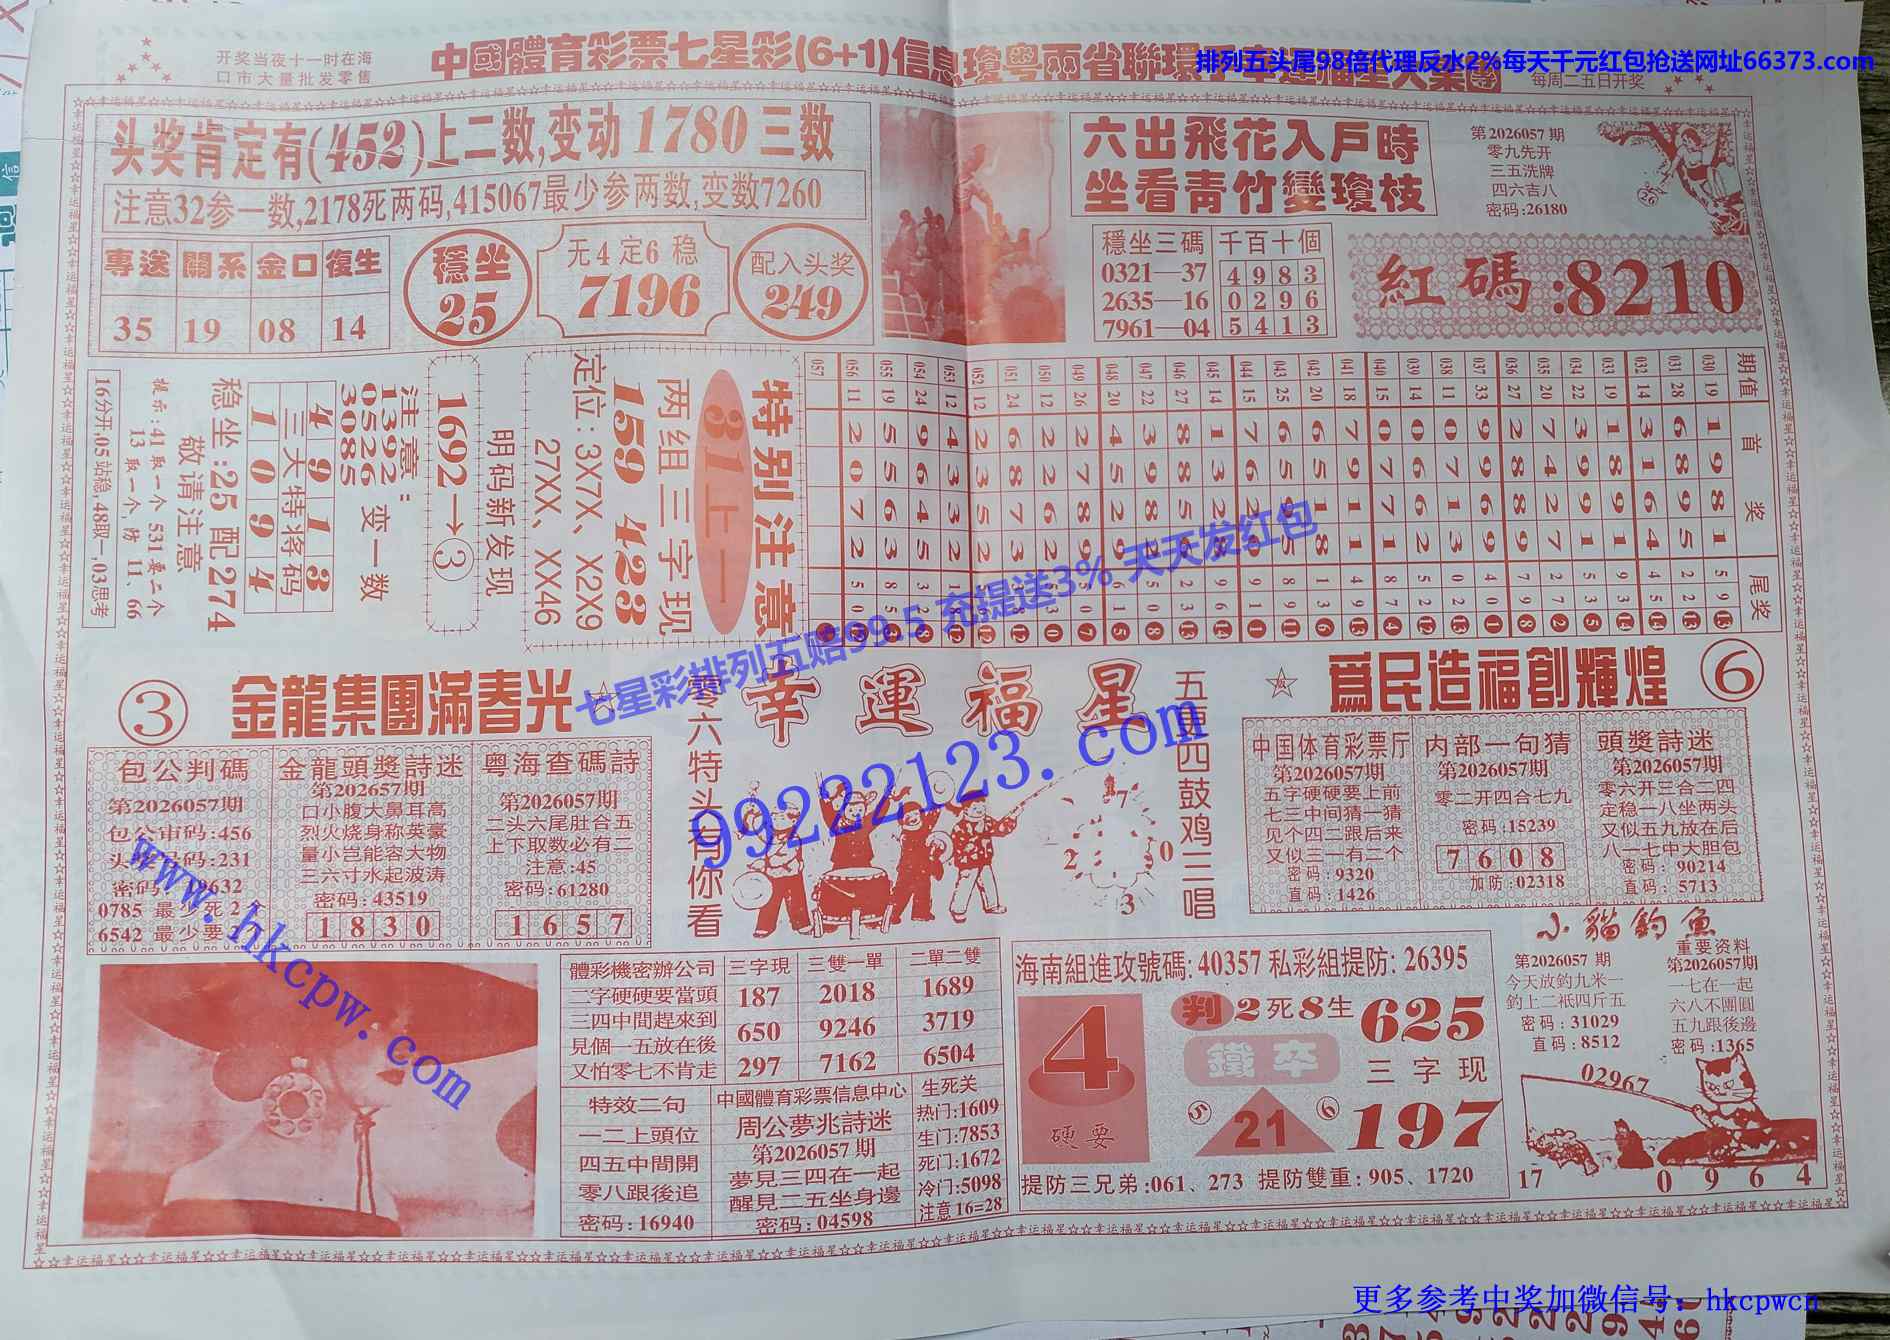 开奖当夜十一时在海
口市大量批发零售
中國體育彩票七星彩(6+1)信息瓊粤兩省聯環
排列五头尾98倍代理反水2%每天千元红包抢送网址66373.com
每周二五日开奖
头奖肯定有(452)上二数,变动1780三数
注意32参一数,2178死两码,415067最少参两数,变数7260
專送 關系 金口 復生
35 19 08 14
穩坐
25
无4定6稳
7196
配入头奖
249
六出飛花入戶時
坐看青竹變瓊枝
第2026057期
零九先开
三五洗牌
四六吉八
密码:26180
26
穩坐三碼
0321—37
2635—16
7961—04
千百十個
4983
0296
5413
紅碼:8210
16分开,05站稳,48取一,03思考
提示:41取一个 531要二个
13取一个,防 11、66
敬请注意
稳坐:25配274
三大特将码
4913
1094
注意:
1392
0526
3085
变一数
1692→③
明码新发现
特别注意
31上一
两组三字现
159 423
定位:3X7X、X2X9
27XX、XX46
期值 首奖 尾奖
057
056 11 2072
055 19 5563
054 24 9645
053 12 4332
052 12 2352
051 24 6873
050 12 2262
049 26 2789
048 20 4529
047 22 3982
046 27 8856
045 14 1328
044 15 7626
043 25 6595
042 20 6518
041 18 7911
040 15 0771
039 14 0662
038 11 0713
037 33 9969
036 27 2889
035 20 7427
034 22 3991
033 19 1891
032 14 3164
031 28 6895
030 19 1981
七星彩排列五赔99.5 充提送3% 天天发红包
③ 金龍集團滿春光
幸運福星
爲民造福創輝煌 ⑥
零六特头有你看
五更四鼓鸡三唱
7
2
0
3
99222123.com
包公判碼
第2026057期
包公审码:456
231
0785 最少死2
6542 最少要
金龍頭獎詩迷
第202657期
口小腹大鼻耳高
烈火烧身称英豪
量小岂能容大物
三六寸水起波涛
密码:43519
1830
粤海查碼詩
第2026057期
二头六尾肚合五
上下取数必有二
注意:45
密码:61280
1657
中国体育彩票厅
第2026057期
五字硬硬要上前
七三中间猜一猜
见个四二跟后来
又似三一有二个
密码:9320
直码:1426
内部一句猜
第2026057期
零二开四合七九
密码:15239
7608
加防:02318
頭獎詩迷
第2026057期
零六开三合二四
定稳一八坐两头
又似五九放在后
八一七中大胆包
密码:90214
直码:5713
www.hkcpw.com
體彩機密辦公司
二字硬硬要當頭
三四中間趕來到
見個一五放在後
又怕零七不肯走
三字現 三雙一單 二單二雙
187 2018 1689
650 9246 3719
297 7162 6504
特效二句
一二上頭位
四五中間開
零八跟後追
密码:16940
中國體育彩票信息中心
周公夢兆詩迷
第2026057期
夢見三四在一起
醒見二五坐身邊
密码:04598
生死关
热门:1609
生门:7853
死门:1672
冷门:5098
注意16=28
海南組進攻號碼:40357 私彩組提防:26395
4
硬要
判2死8生
鐵卒
5 21 6
625
三字现
197
提防三兄弟:061、273 提防雙重:905、1720
小貓釣魚
第2026057期
今天放釣九米一
釣上二衹四斤五
密码:31029
直码:8512
重要资料
第2026057期
一七在一起
六八不團圓
五九跟後邊
密码:1365
02967
17
0964
更多参考中奖加微信号: hkcpwcn